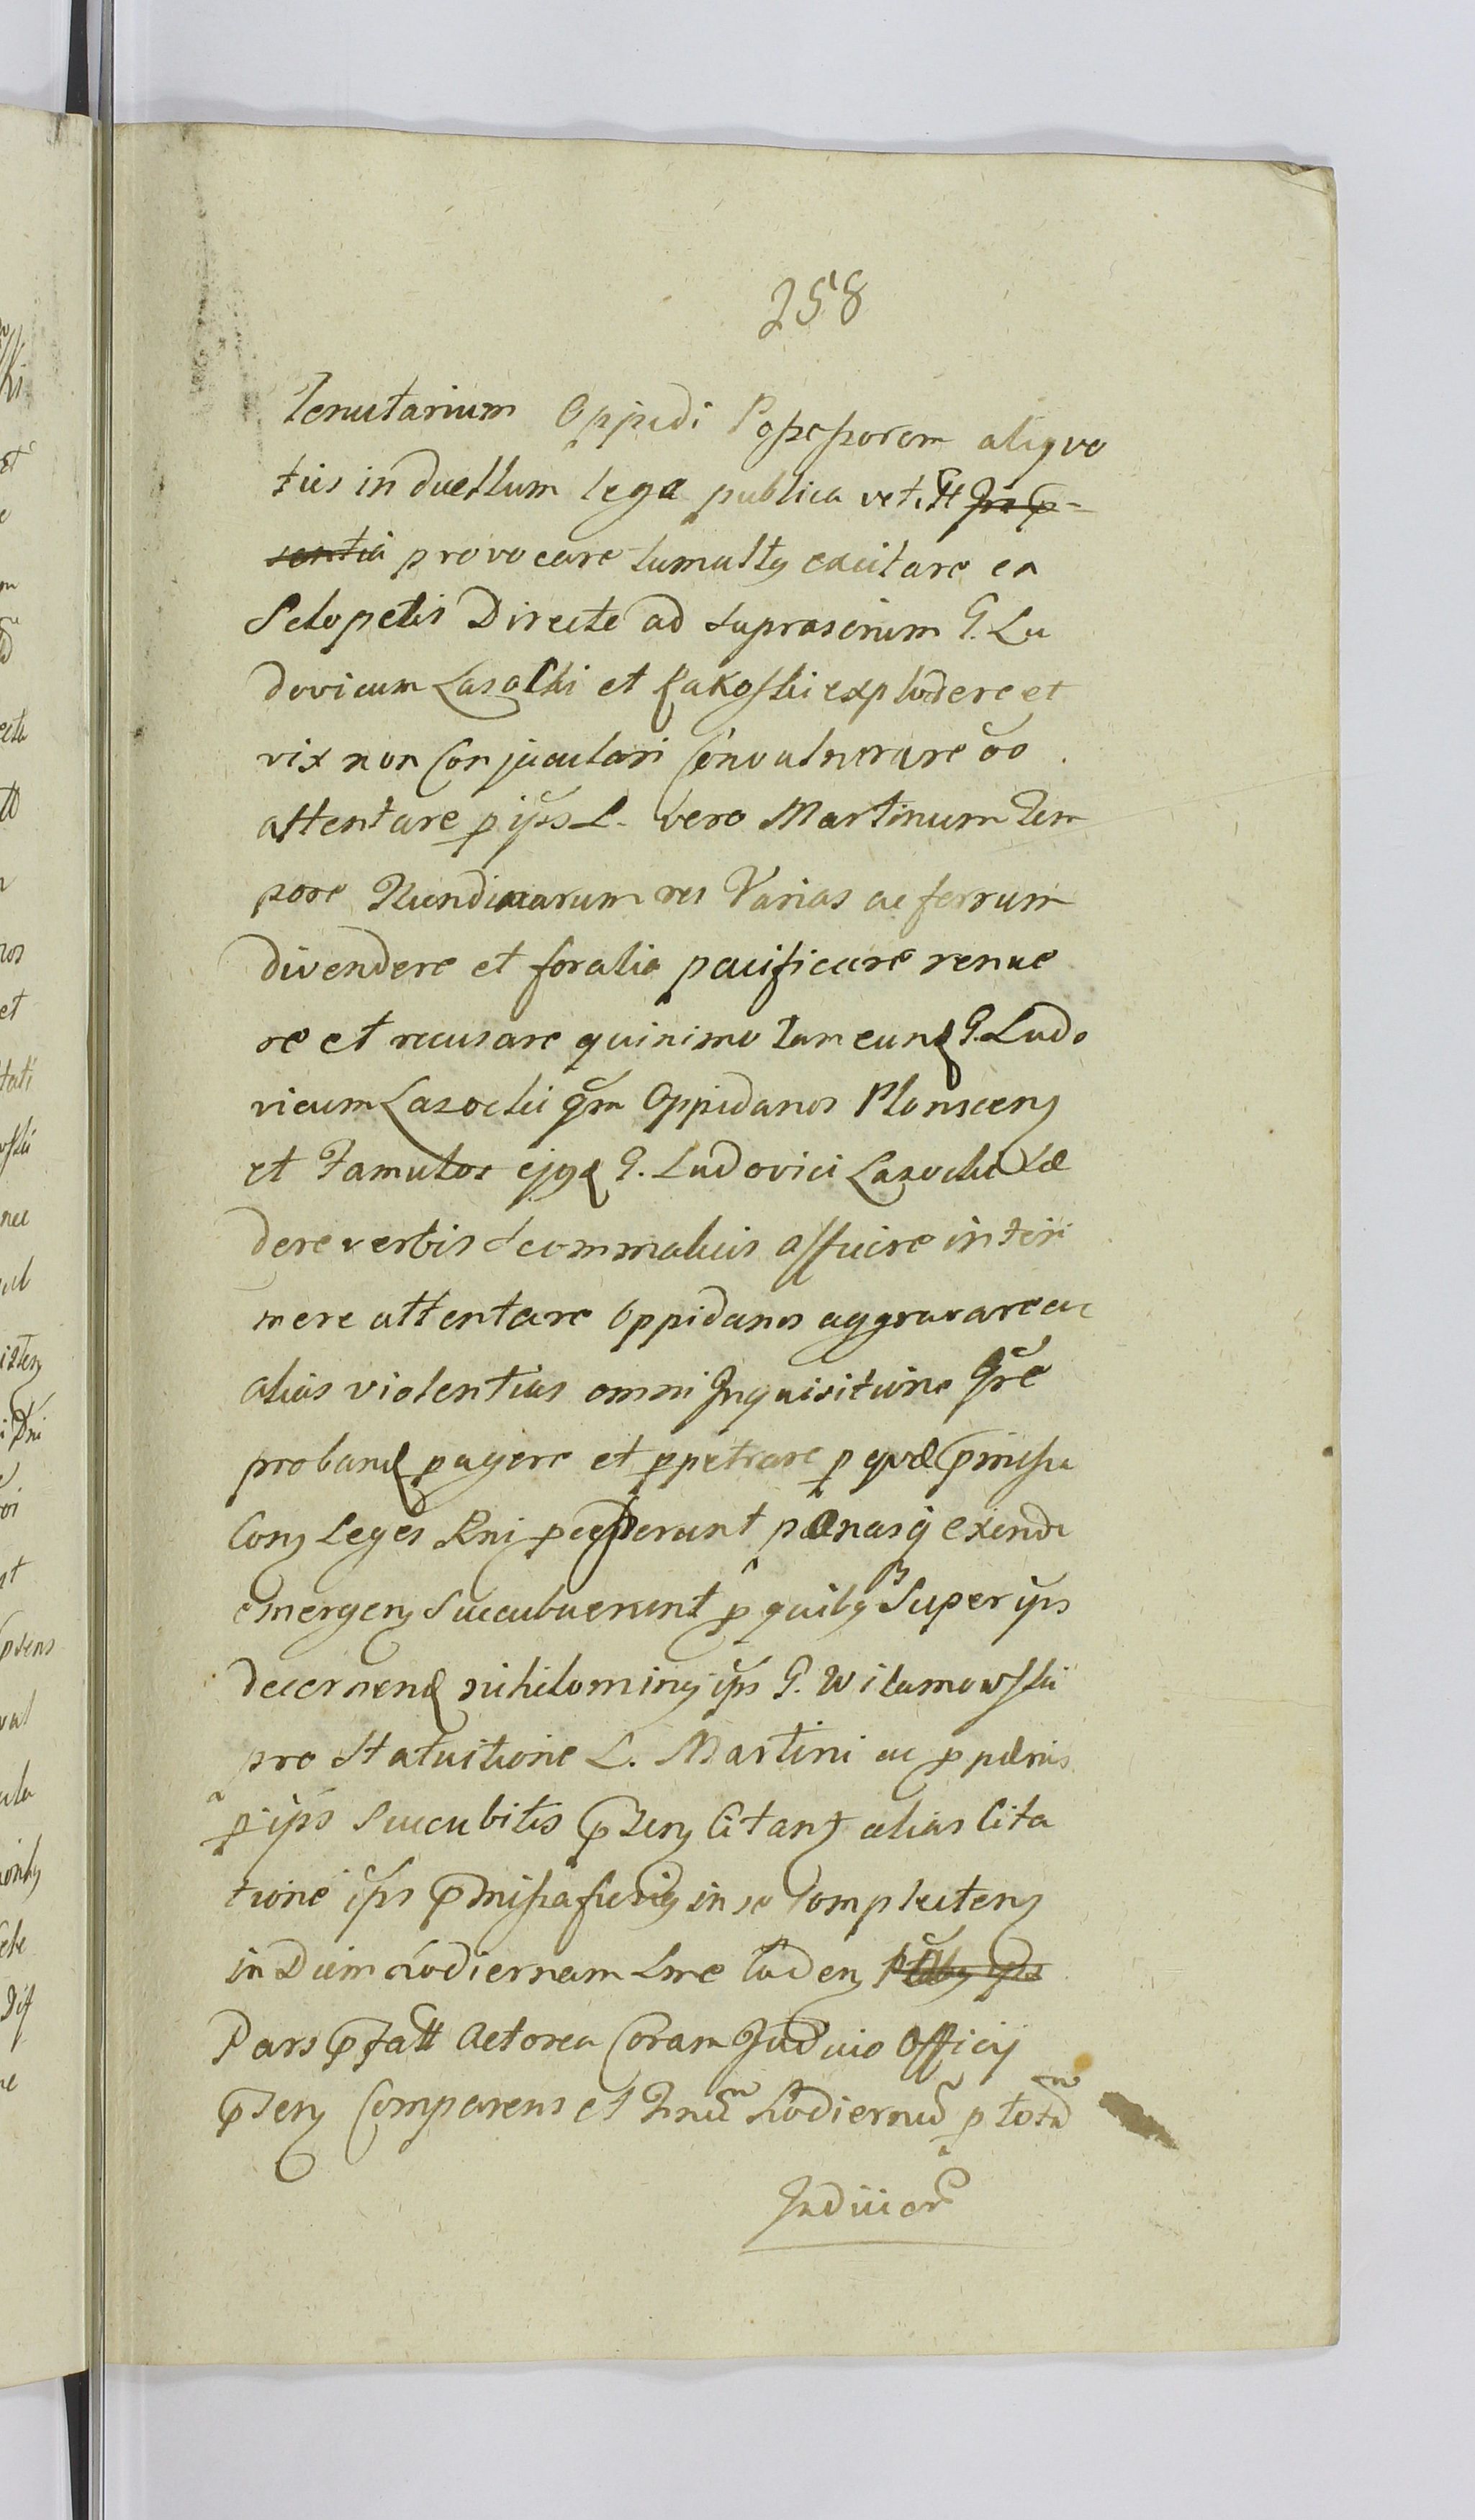 258
Tenutarium Oppidi Possessorem aliquo
ties in duellum lege publica vetitt
provocare tumultus excitare ex
Sclopetis Directe ad suprascrium G. Lu
dovicum Lasocki et Rakoski explodere et
vix non Conjaculari Convulnerare oo
attentare p ipss L. vero Martinum Tem
pore Nundinarum res Varias ac ferrum
divendere et foralia pacificare renue
re et recusare quinimo tam eund G. Ludo
vicum Lasocki qm Oppidanos Plonscens
et Famulos ejusd G. Ludovici Lasocki Læ
dere verbis scommaticis afficere interi
mere attentare Oppidanos aggravare ac
alias violentias omni Inquisitione Jre
proband pagere et ppetrare p quæ pmissa
Cons Leges Rni pceperunt pænasq exinde
emergens succubuerunt p quibus Super ips
decernend nihilominus ips G. Wilamowski
pro Statuitione L. Martini ac p pænis
p ips succubitis psens Citans alias Cita
tione ips pmissa fusius in se Complectens
in Diem hodiernam Lme Caden
Pars pfatt Actorea Coram Judicio Officij
psens Comparens et Tnum hodiernum p totum
Judicior